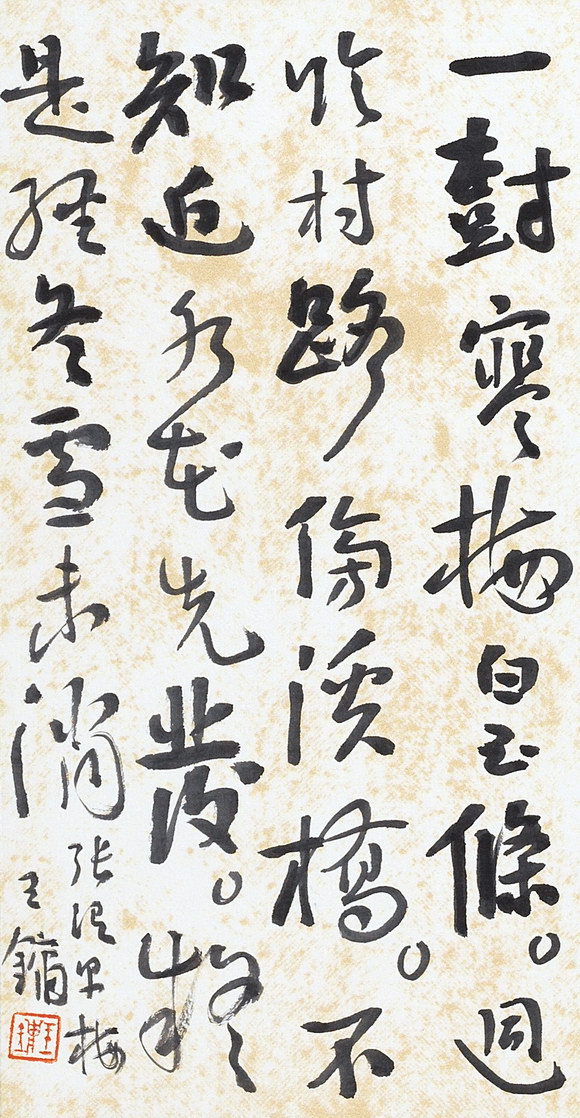 一樹寒梅白玉條。迥
臨村路傍溪橋。不
知近水花先發。疑
是經冬雪未消
張谓早梅
王鏞